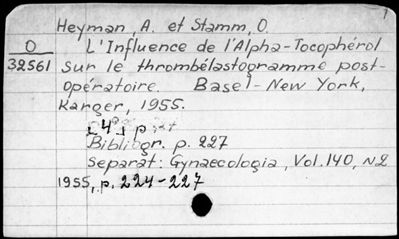 Heyman, A. et Stamm, O.
O
32561
L'Influence de l'Alpha-Tocophérol
sur le thrombélastogramme post-
opératoire. Basel-New York,
Karger, 1955.
[4] p.
Bibliogr. p. 227
Separat: Gynaecologia, Vol. 140, N2
1955, p. 224-227